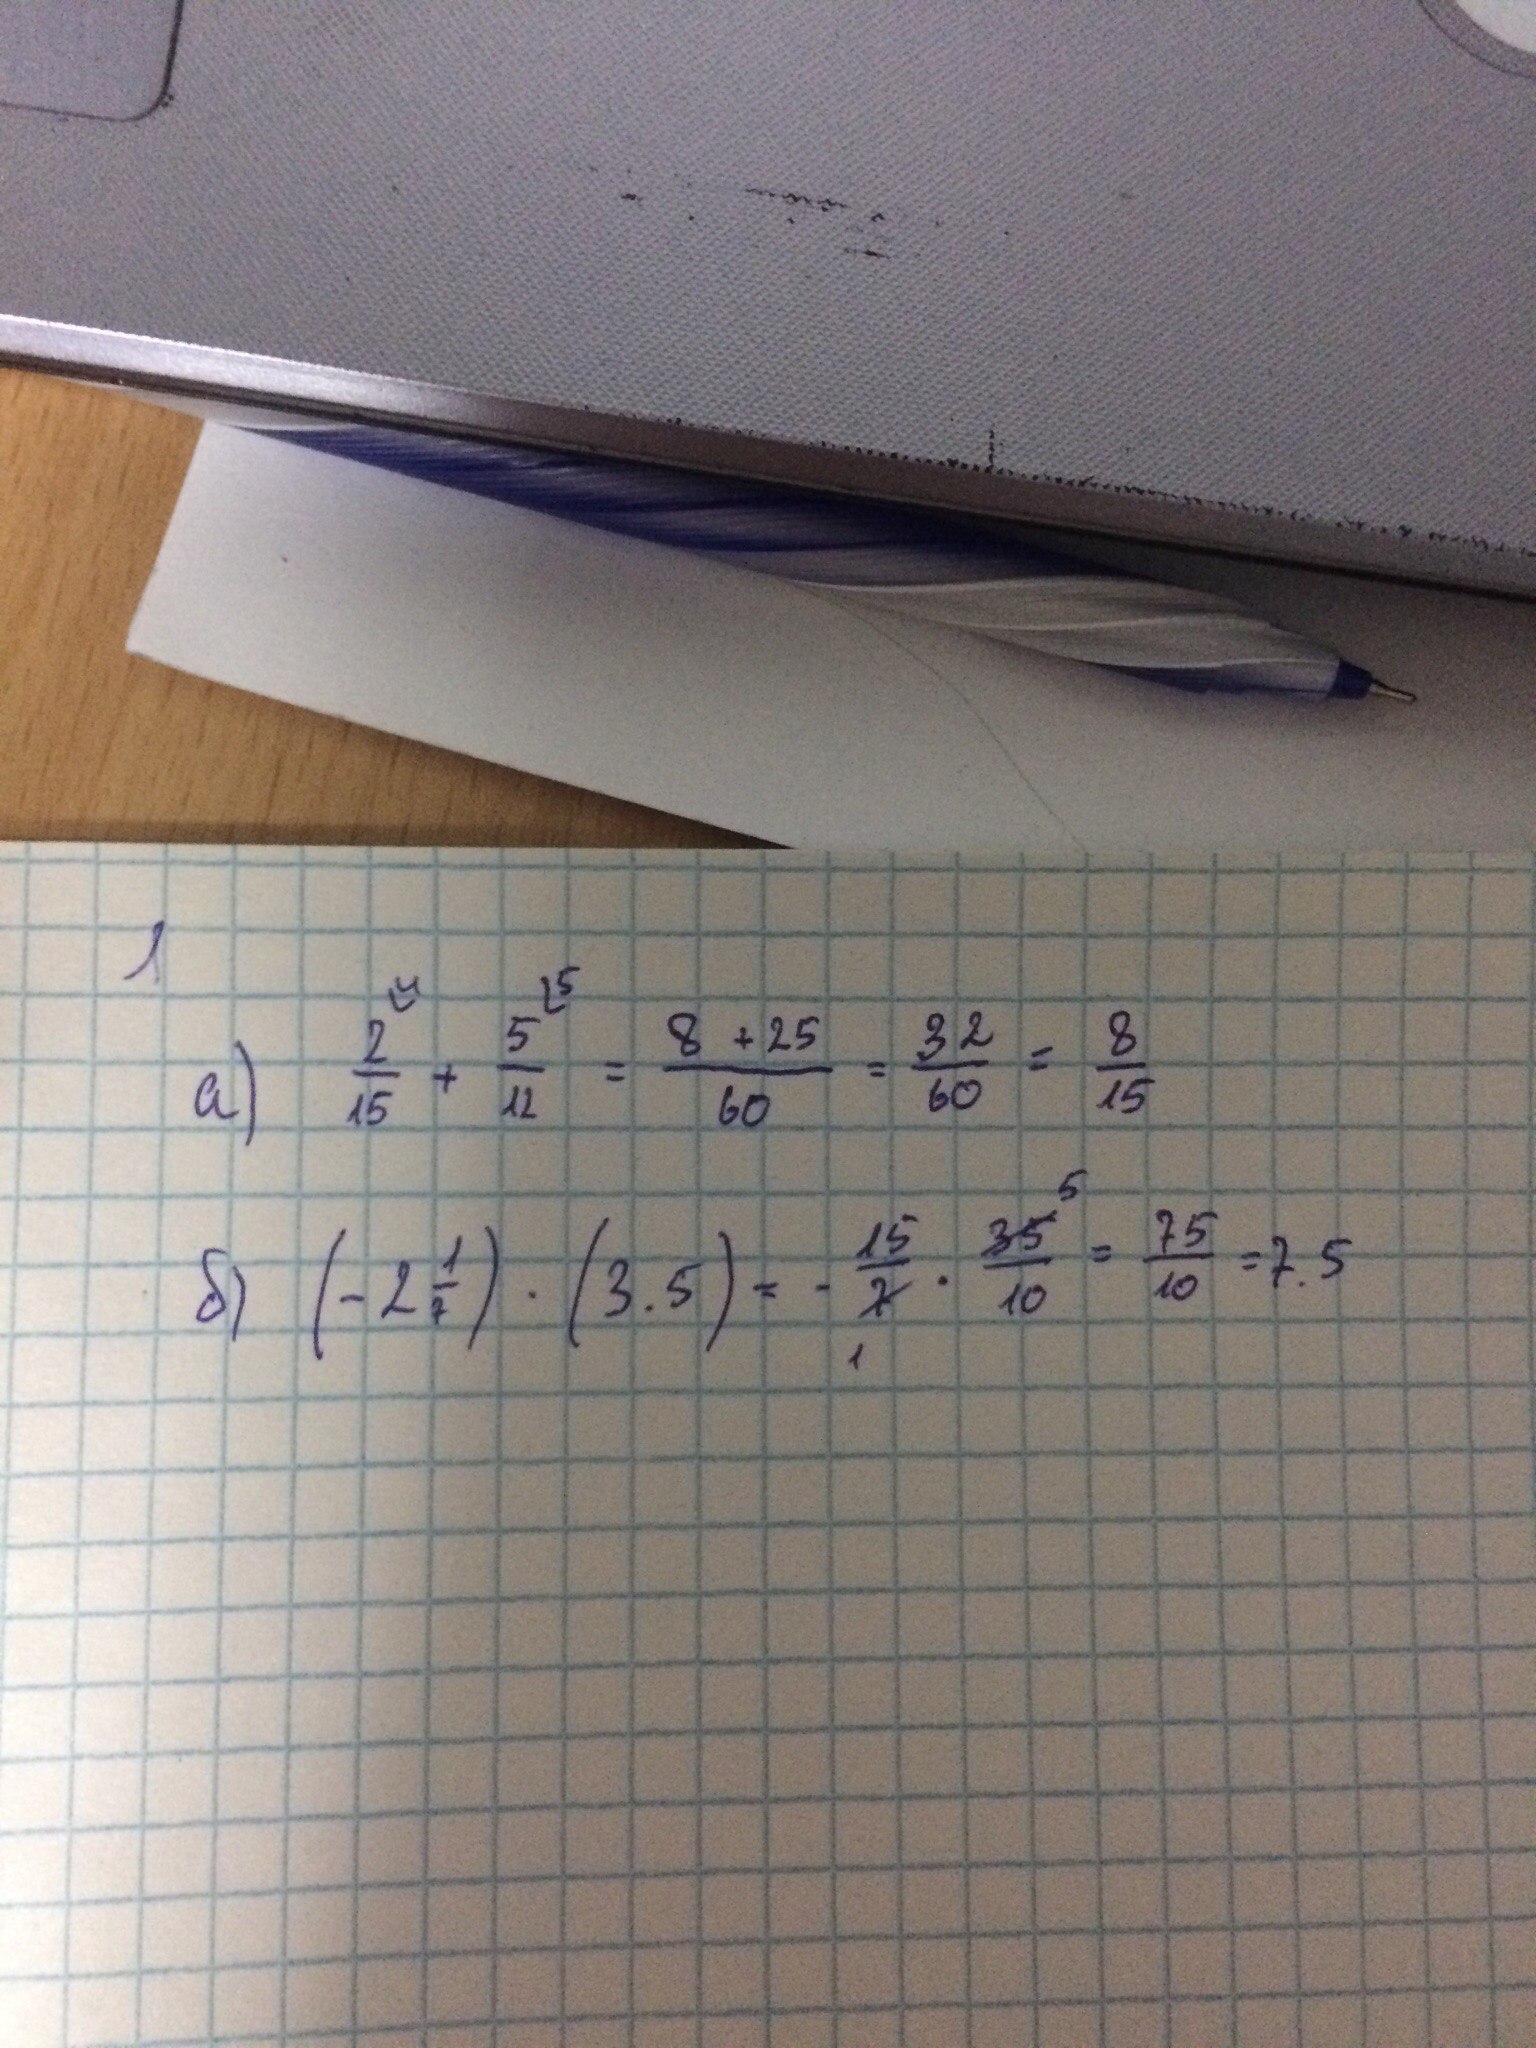 1
а) 2/15 ⌣4 + 5/12 ⌣5 = (8 + 25)/60 = 32/60 = 8/15
б) (-2 1/7) · (3.5) = - 15/7 1 · 35/10 5 = 75/10 = 7.5